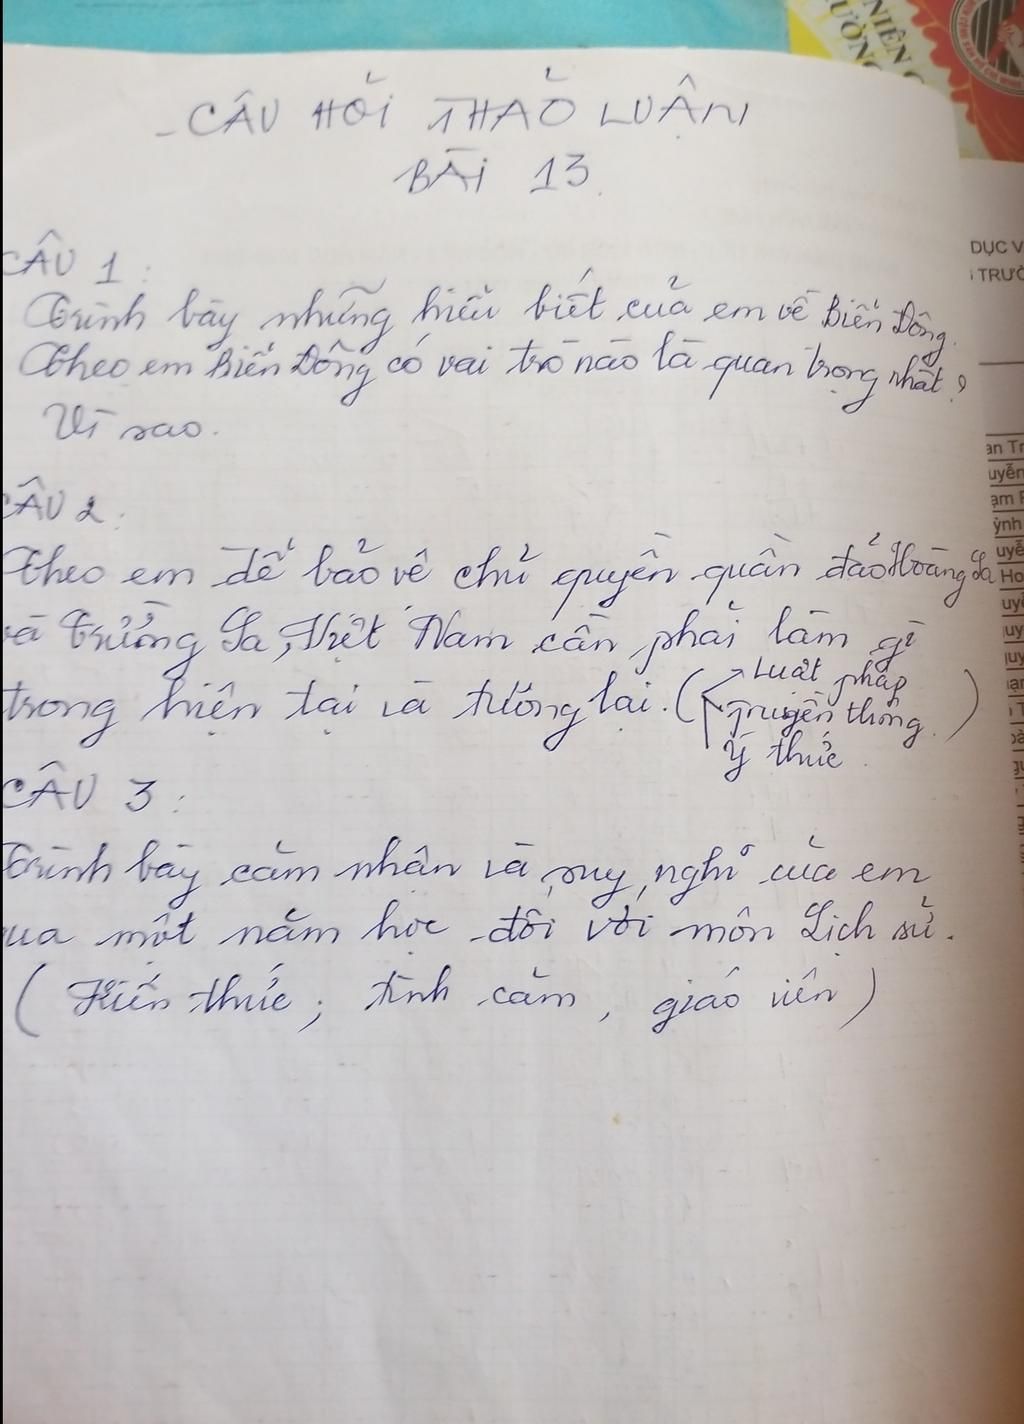 NIÊN
ƯỜNG
- CÂU HỎI THẢO LUẬN
BÀI 13
DỤC V
TRƯỜ
CÂU 1:
Trình bày những hiểu biết của em về Biển Đông.
Theo em Biển Đông có vai trò nào là quan trọng nhất?
Vì sao.
CÂU 2:
Theo em để bảo vệ chủ quyền quần đảo Hoàng Sa
và Trường Sa, Việt Nam cần phải làm gì
trong hiện tại và tương lai. (Luật pháp
Truyền thống)
Ý thức.
CÂU 3:
Trình bày cảm nhận và suy nghĩ của em
qua một năm học đối với môn Lịch sử.
(Kiến thức; tình cảm, giáo viên)
an Tr
uyễn
ạm
ỳnh
uyễ
Ho